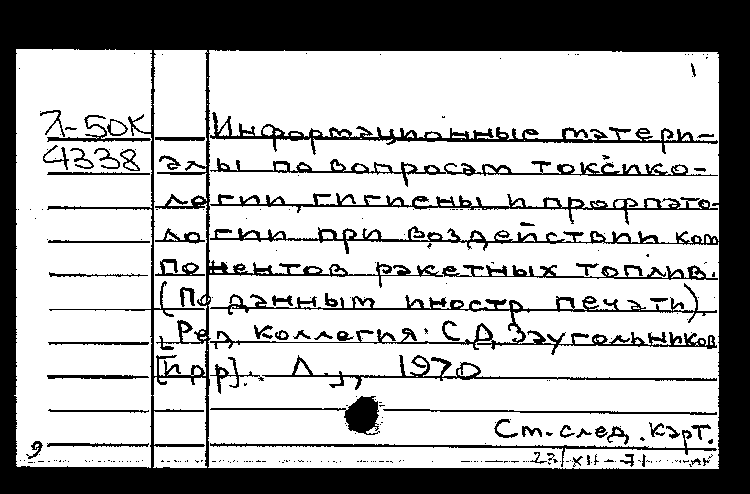 1
Л-50К Информационные матери-
4338 алы по вопросам токсико-
логии, гигиены и профпато-
логии при воздействии ком
понентов ракетных топлив.
(По данным иностр. печати).
[Ред. коллегия: С.Д. Заугольников
[и др]. Л., 1970
См. след. карт.
9
23/XII-71